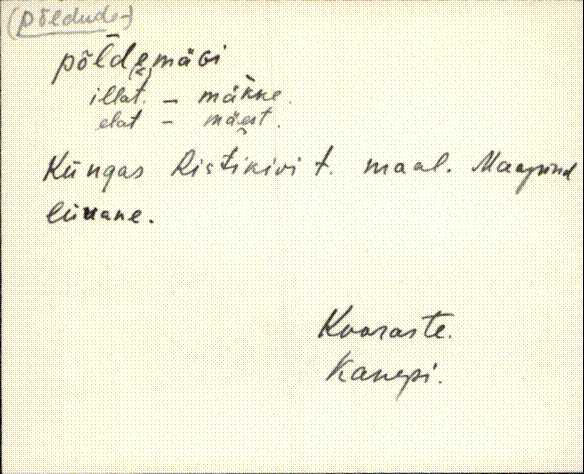 (põldude-)
põldemägi
(e)
illat. – mäkke.
elat – mäest.
Küngas Ristikivi t. maal. Maapind
liivane.
Kooraste.
Kanepi.